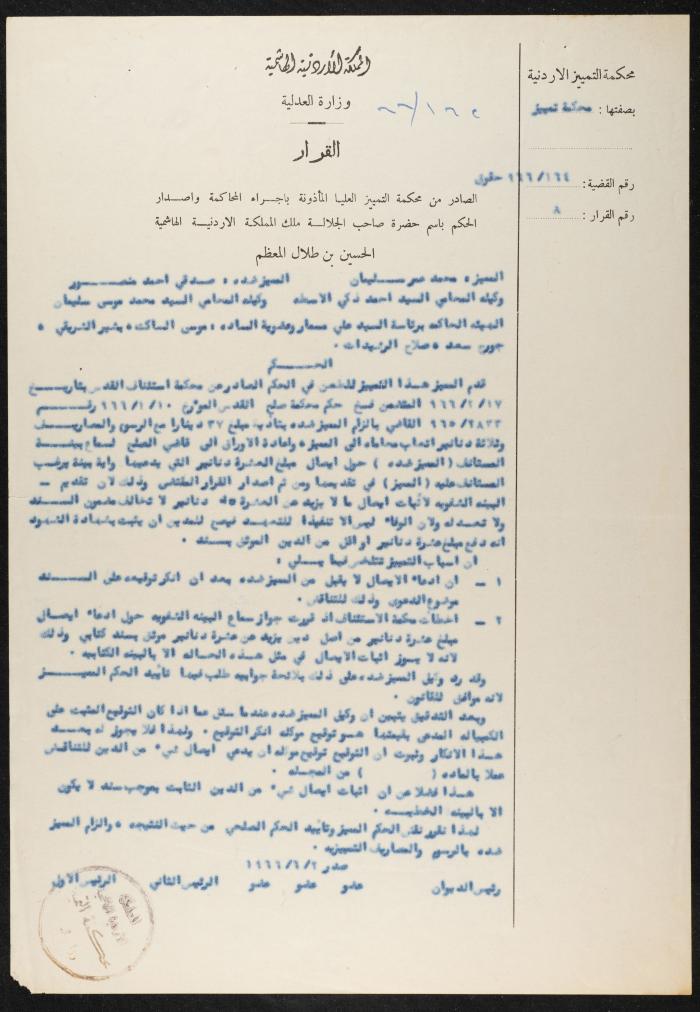 المملكة الأردنية الهاشمية
وزارة العدلية
القرار
محكمة التمييز الاردنية
بصفتها : محكمة تمييز
رقم القضية : ١٦٤/ ١٦٦ حقوق
رقم القرار : ٨
الصادر من محكمة التمييز العليا المأذونة باجراء المحاكمة واصدار
الحكم باسم حضرة صاحب الجلالة ملك المملكة الاردنية الهاشمية
الحسين بن طلال المعظم
المميز : محمد عمر سليمان المميز ضده : صدقي احمد منصور
وكيله المحامي السيد احمد زكي وكيله المحامي السيد محمد موسى سليمان
الهيئه الحاكمه برئاسة السيد علي مسمار وعضوية الساده : موسى الساكت ، بشير الشريقي ،
جورج سعد ، صلاح الرشيدات .
الحكم
قدم المميز هذا التمييز للطعن في الحكم الصادر عن محكمة استئناف القدس بتاريخ
١٦٦/٢/١٧ المتضمن فسخ حكم محكمة صلح القدس المؤرخ ١٦٦/١/١٠ رقم
١٦٥/٢٨٣٣ القاضي بالزام المميز ضده بتأدية مبلغ ٣٧ دينارا مع الرسوم والمصاريف
وثلاثة دنانير اتعاب محاماه الى المميز ، واعادة الاوراق الى قاضي الصلح لسماع بينة
المستأنف ( المميز ضده ) حول ايصال مبلغ العشرة دنانير التي يدعيها واية بينة يرغب
المستأنف عليه ( المميز ) في تقديمها ومن ثم اصدار القرار المقتضى وذلك لان تقديم -
البينه الشفويه لاثبات ايصال ما لا يزيد عن العشرة دنانير لا تخالف مضمون السند
ولا تعدله ولان الوفاء ليس الا تنفيذا للتعهد فيصح للمدين ان يثبت بشهادة الشهود
انه دفع مبلغ عشرة دنانير او اقل من الدين الموثق بسند .
ان اسباب التمييز تتلخص فيما يلي :
١ - ان ادعاء الايصال لا يقبل من المميز ضده بعد ان انكر توقيعه على السند
موضوع الدعوى وذلك للتناقض .
٢ - اخطأت محكمة الاستئناف اذ قررت جواز سماع البينه الشفويه حول ادعاء ايصال
مبلغ عشرة دنانير من اصل دين يزيد عن عشرة دنانير موثق بسند كتابي وذلك
لانه لا يجوز اثبات الايصال في مثل هذه الحاله الا بالبينه الكتابيه .
وقد رد وكيل المميز ضده على ذلك بلائحة جوابيه طلب فيها تأييد الحكم المميز
لانه موافق للقانون .
وبعد التدقيق يتبين ان وكيل المميز ضده عندما سئل عما اذا كان التوقيع المثبت على
الكمبياله المدعى بقيمتها هو توقيع موكله انكر التوقيع . ولهذا فلا يجوز له بعد
هذا الانكار وثبوت ان التوقيع توقيع موكله ان يدعي ايصال شيء من الدين للتناقض
عملا بالماده ( ) من المجله .
هذا فضلا عن ان اثبات ايصال شيء من الدين الثابت بموجب سند لا يكون
الا بالبينه الخطيه .
لهذا نقرر نقض الحكم المميز وتأييد الحكم الصلحي من حيث النتيجه ، والزام المميز
ضده بالرسوم والمصاريف التمييزيه .
صدر ١٩٦٦/٦/٢
رئيس الديوان عضو عضو عضو الرئيس الثاني الرئيس الاول